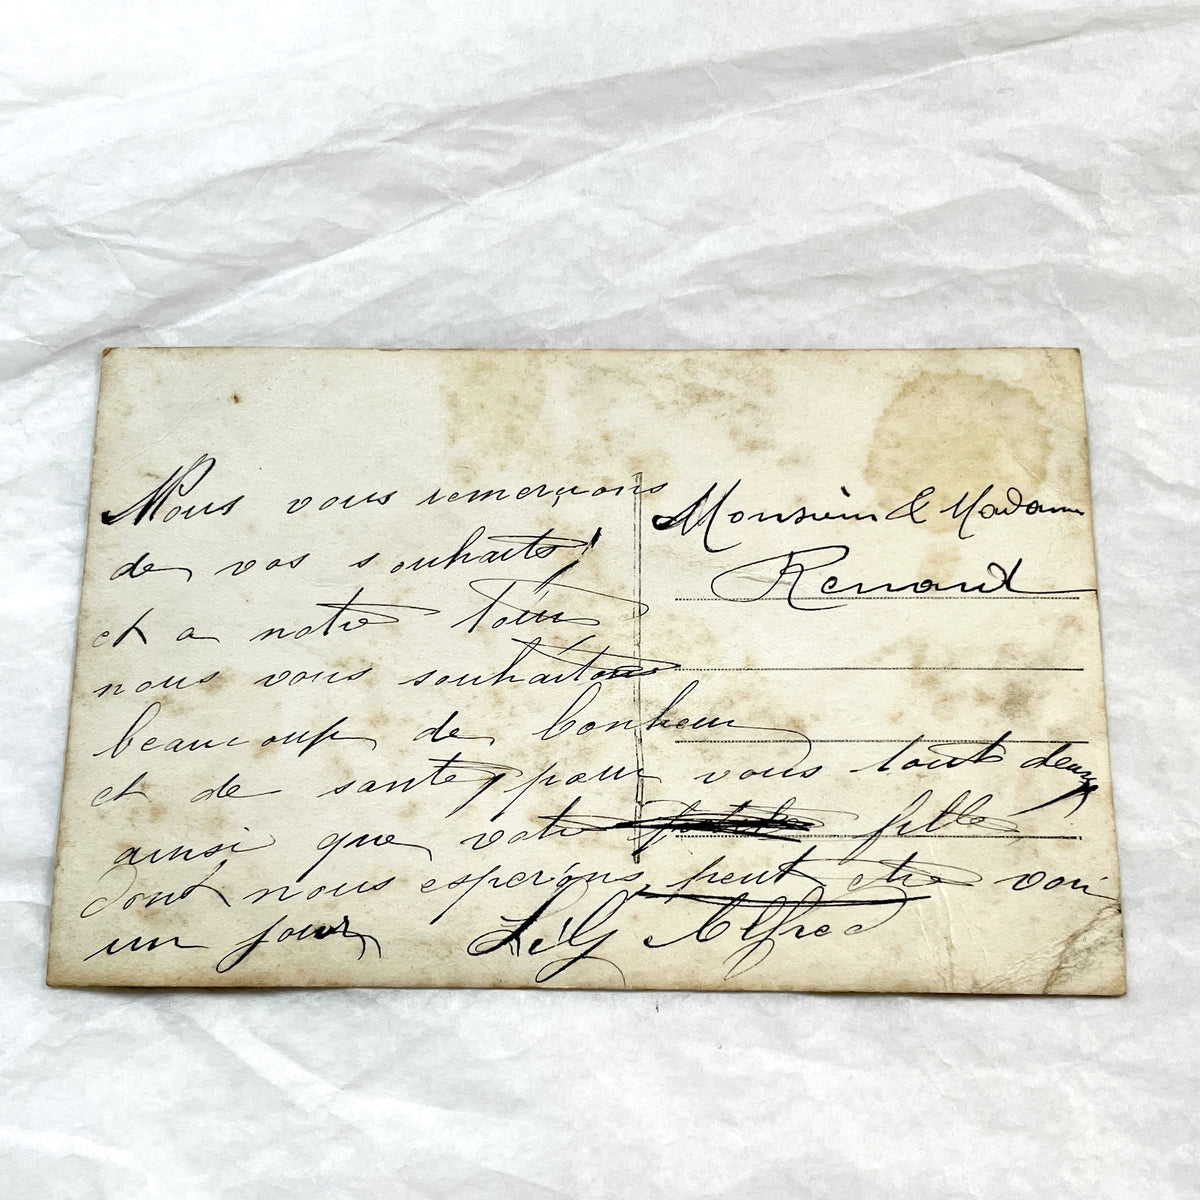 Nous vous remerçions
de vos souhaits!
et a notre tour
nous vous souhaitons
beaucoup de bonheur
et de santé, pour vous tout deux
ainsi que votre fille
dont nous espérons peut etre voir
un jour
Alfred
Monsieur & Madame
Renard